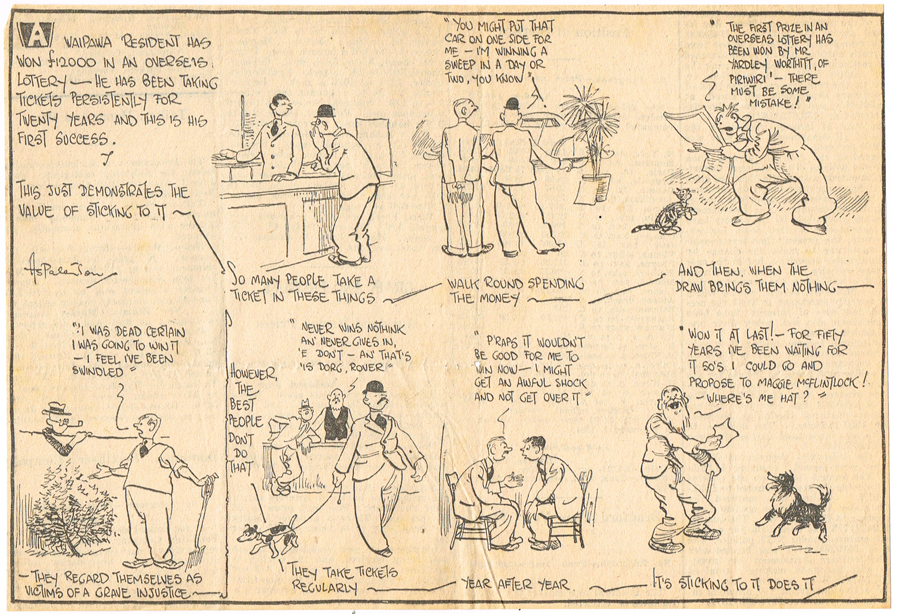 A WAIPAWA RESIDENT HAS
WON £12000 IN AN OVERSEAS
LOTTERY — HE HAS BEEN TAKING
TICKETS PERSISTENTLY FOR
TWENTY YEARS AND THIS IS HIS
FIRST SUCCESS.
THIS JUST DEMONSTRATES THE
VALUE OF STICKING TO IT —
SO MANY PEOPLE TAKE A
TICKET IN THESE THINGS
"YOU MIGHT PUT THAT
CAR ON ONE SIDE FOR
ME — I'M WINNING A
SWEEP IN A DAY OR
TWO, YOU KNOW"
WALK ROUND SPENDING
THE MONEY —
"THE FIRST PRIZE IN AN
OVERSEAS LOTTERY HAS
BEEN WON BY MR
YARDLEY WORTHITT, OF
PIRIWIRI' — THERE
MUST BE SOME
MISTAKE!"
AND THEN, WHEN THE
DRAW BRINGS THEM NOTHING —
"I WAS DEAD CERTAIN
I WAS GOING TO WIN IT
— I FEEL I'VE BEEN
SWINDLED"
— THEY REGARD THEMSELVES AS
VICTIMS OF A GRAVE INJUSTICE —
HOWEVER,
THE
BEST
PEOPLE
DON'T
DO
THAT
"NEVER WINS NOTHINK
AN' NEVER GIVES IN,
'E DON'T — AN' THAT'S
'IS DORG, ROVER"
THEY TAKE TICKETS
REGULARLY —
"P'RAPS IT WOULDN'T
BE GOOD FOR ME TO
WIN NOW — I MIGHT
GET AN AWFUL SHOCK
AND NOT GET OVER IT"
YEAR AFTER YEAR. —
"WON IT AT LAST! — FOR FIFTY
YEARS I'VE BEEN WAITING FOR
IT SO'S I COULD GO AND
PROPOSE TO MAGGIE McFLINTLOCK!
— WHERE'S ME HAT?"
IT'S STICKING TO IT DOES IT